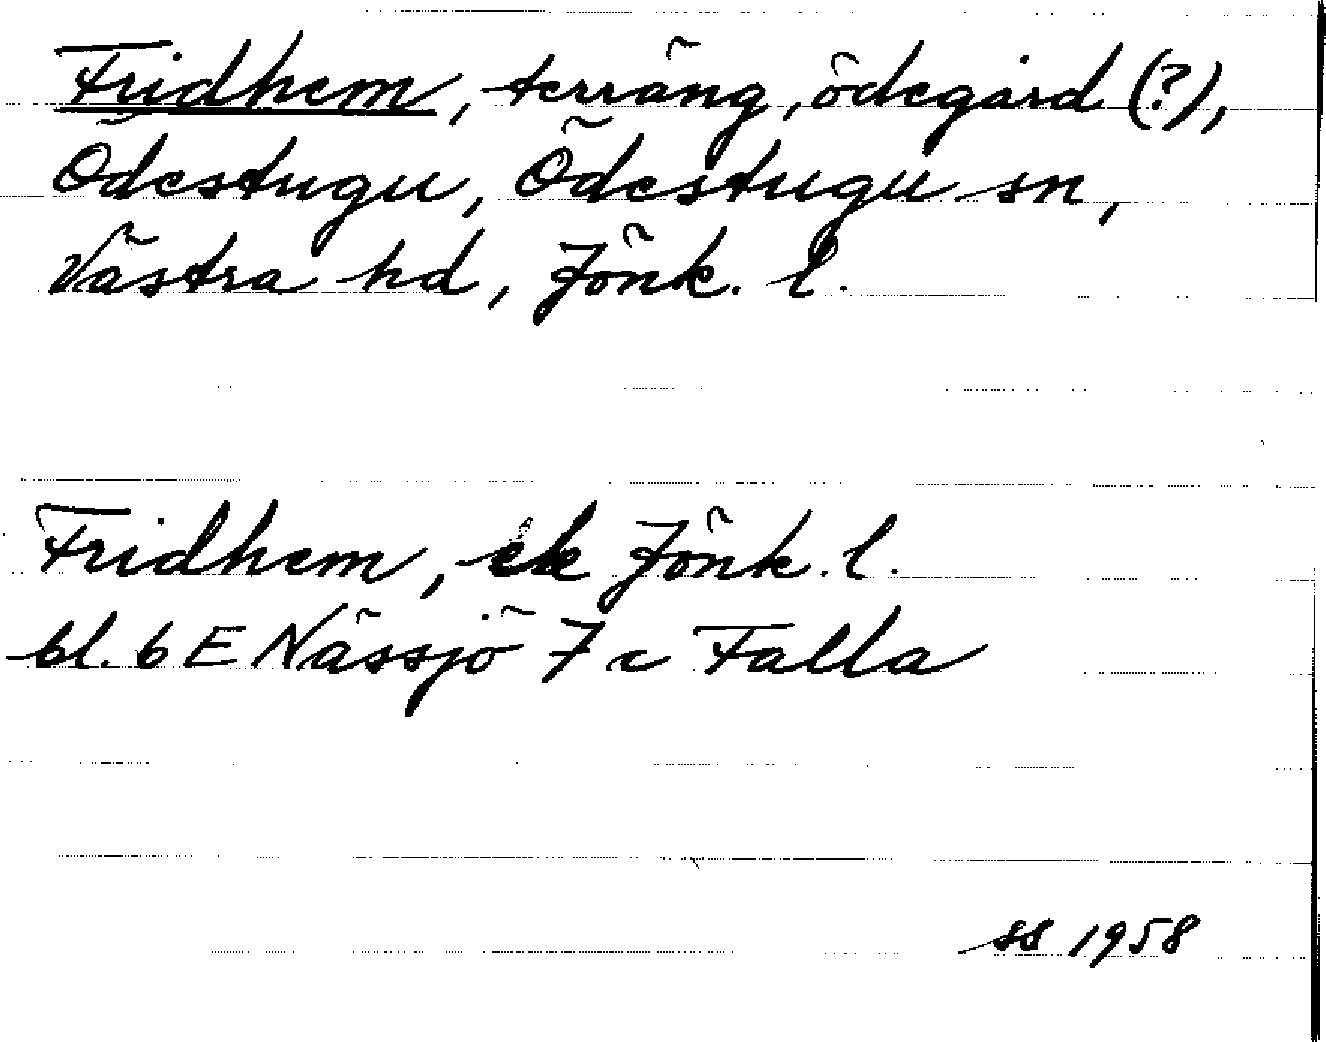 Fridhem, terräng, ödegård (?),
Ödestugu, Ödestugu sn,
Västra hd, Jönk. l.
Fridhem, ek Jönk. l.
bl. 6 E Nässjö 7 c Falla
SS 1958